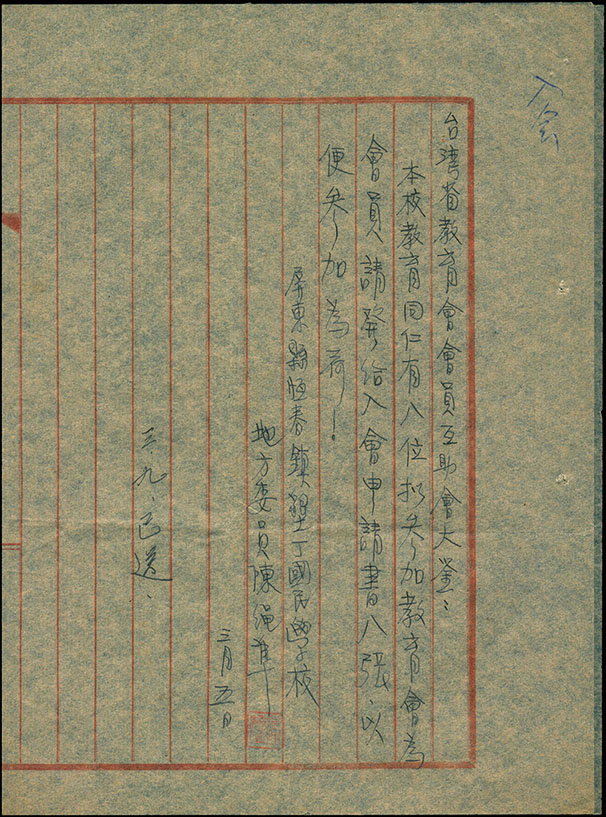 入会
台湾省教育會會員互助會大鑒：
本校教育同仁有八位拟參加教育會為
會員請發給入會申請書八張，以
便參加為荷！
屏東縣恆春鎮墾丁國民學校
地方委員陳繩準
三月五日
三.九.已送.